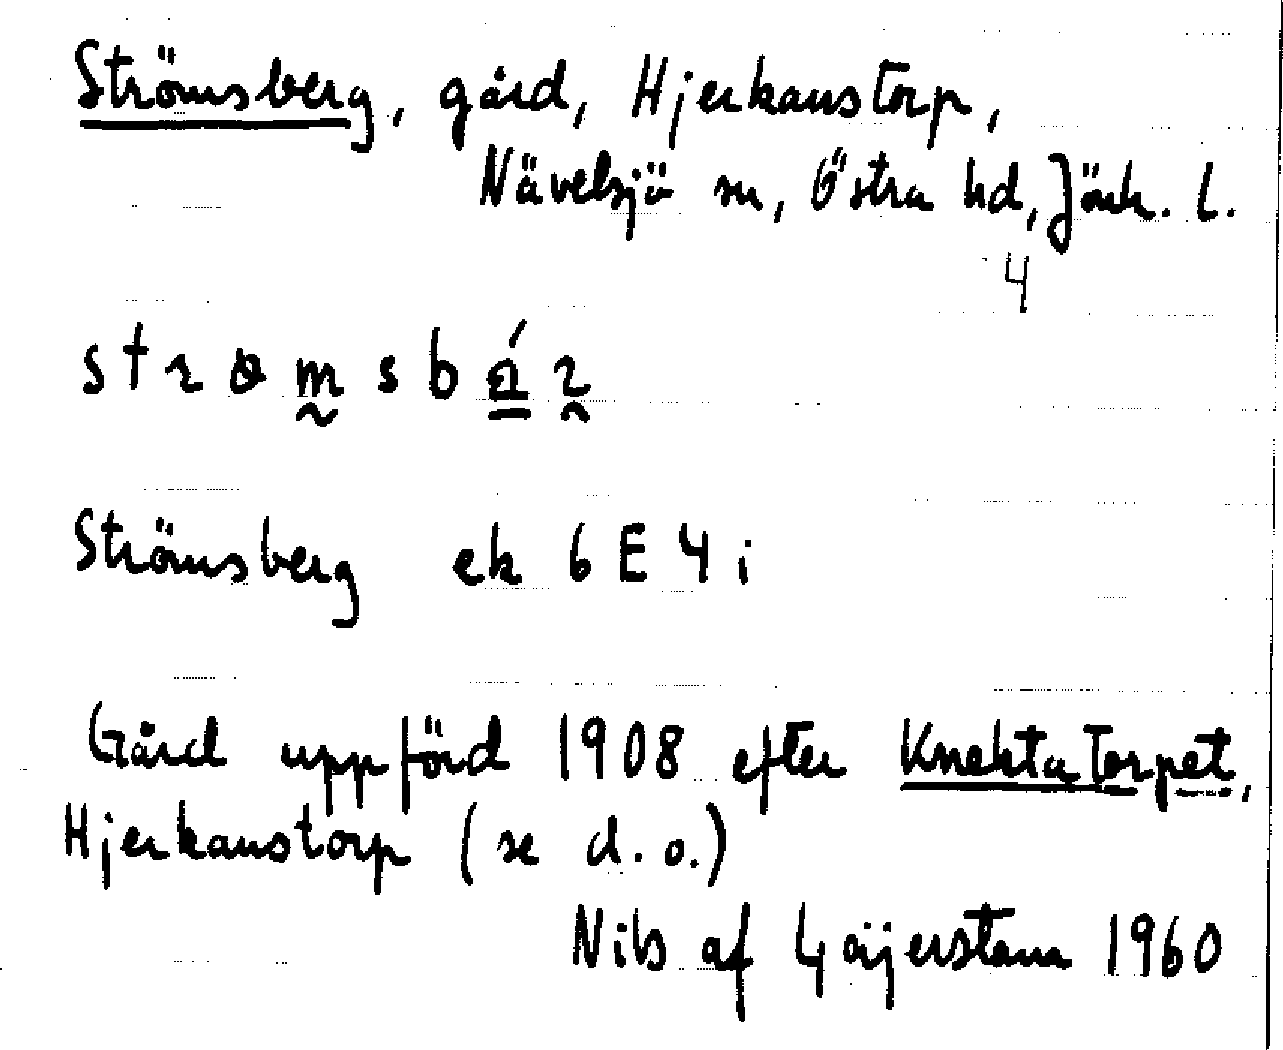 Strömsberg, gård, Hjerkanstorp,
Nävelsjö sn, Östra hd, Jönk. l.
4
Strömsberg ek 6 E 4 i
Gård uppförd 1908 efter Knektatorpet,
Hjerkanstorp (se d.o.)
Nils af Geijerstam 1960